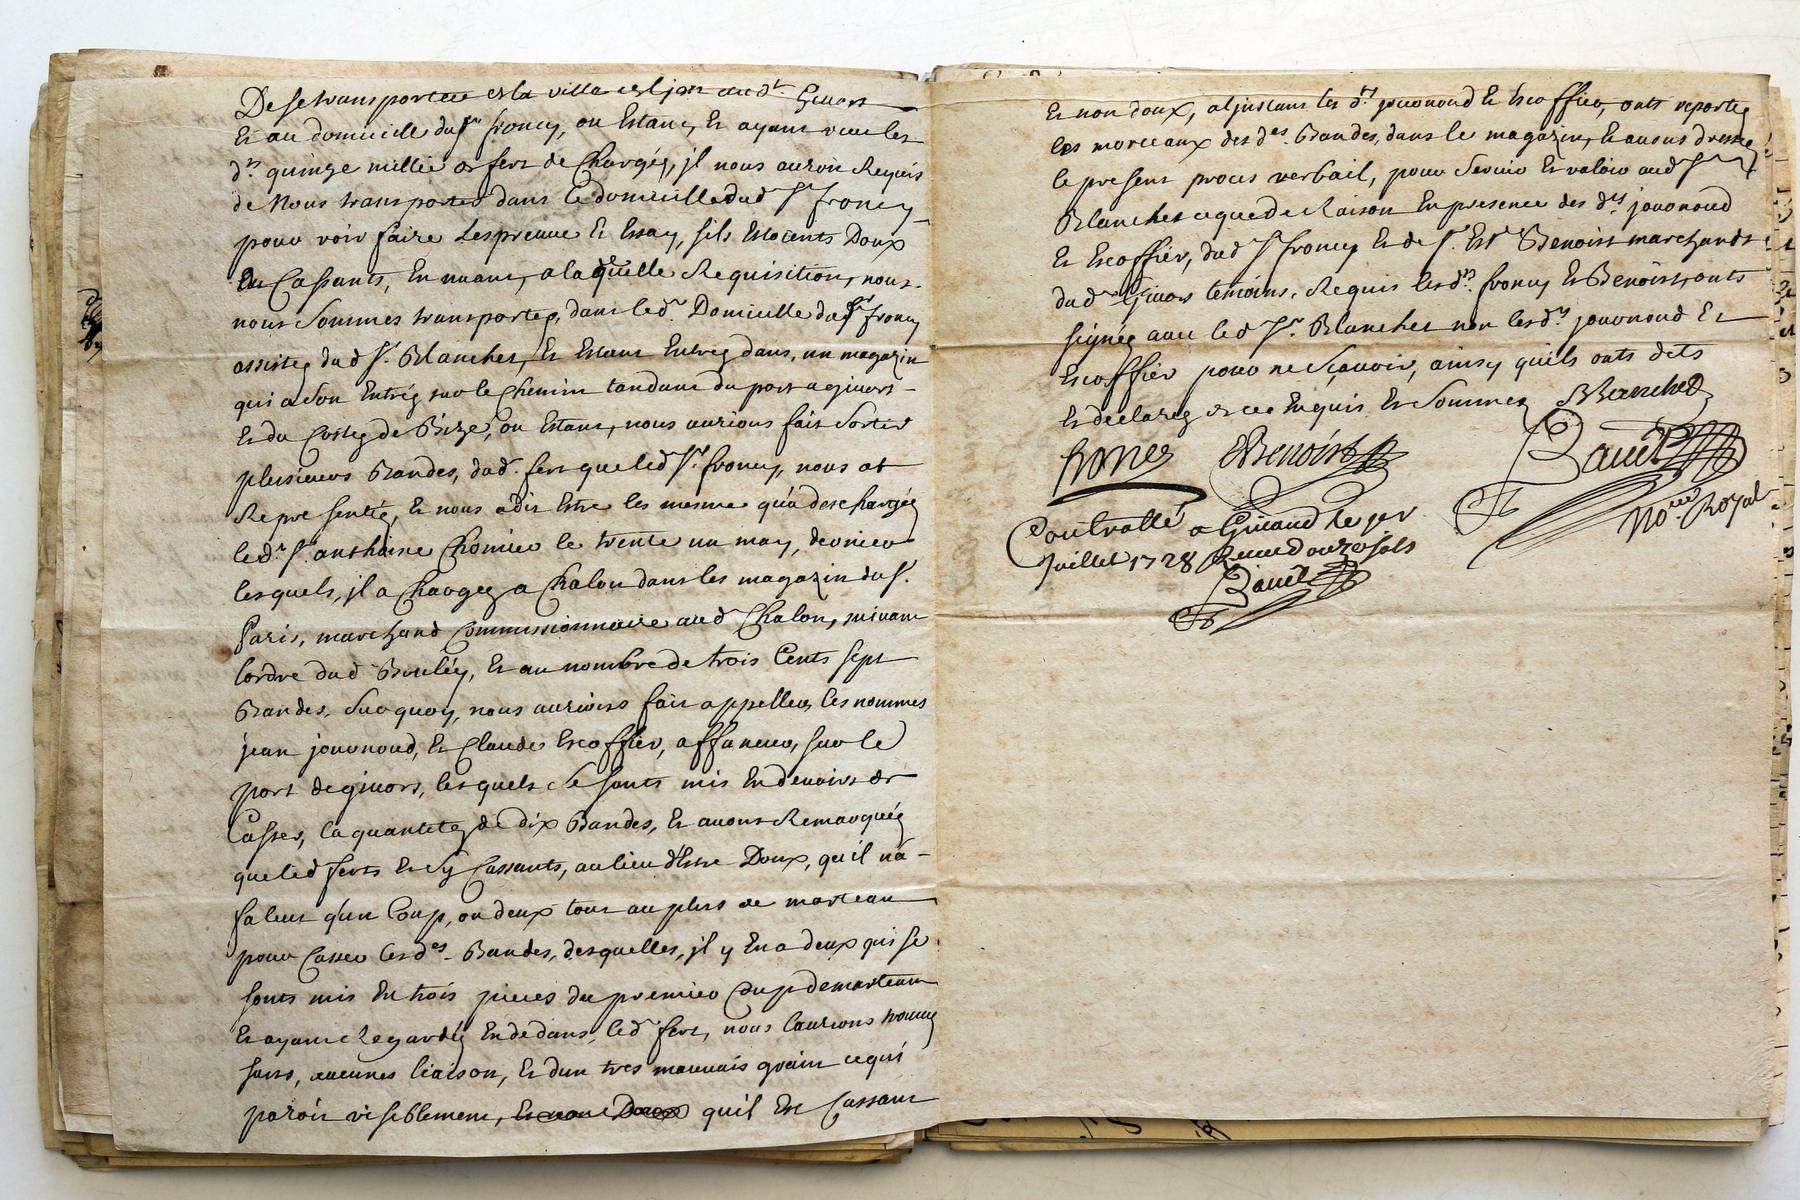 De se transporter en la ville et port dud.t Givort
Et au domicille du sr froncy, ou Estant, Et ayant vue les
d.ts quinze millier de fert de Chargés, jl nous auroit Requis
de Nous transporter dans le domicille dud Sr froncy
pour voir faire Lespreuve Et Essay, sils Estoients Doux
ou Cassants, En nuant, a laquelle Requisition, nous
nous Sommes transportes, dans led.t Domicille du Sr froncy
assistes dud Sr. Blanchet, Et Estant Entres dans, un magazin
qui a Son Entrés sur le Chemin tandant du port a givort
Et du Costes de Bize, ou Estant, nous aurions fait Sortir
plusieurs Bandes, dud. fert que led Sr. froncy, nous at
Represenstés, Et nous a dit Estre les mesme qu'a deschargés
led.t Sr. anthoine Chomier le trente un may, dernier
lesquels, jl a Charges a Chalon dans les magazin du Sr.
Paris, marchand Commissionnaire aud.t Chalon, suivant
lordre dud Bouléy, Et au nombre de trois Cents sept
Bandes, Surquoy, nous aurions fait appeller les nommes
jean jouvnoud, Et Claude Escoffier, affaneur, sur le
port de givort, lesquels Se sonts mis En devoirs de
Casser, la quantites de dix Bandes, Et avons Remarqués
que led ferts Et Sy Cassants, au lieu d'Estre Doux, qu'il n'a
faleut qun Coup, ou deux tout au plus de marteau
pour Casser lesd.es Bandes, desquelles, jl y En a deux qui se
sonts mis En trois pieces du premier Coup de marteau
Et ayant Regardés En dedans, led.t fert, nous laurions trouves
sans, aucunes liaison, Et dun tres mauvais grain ce qui
paroit visiblement, Et non Doux quil Est Cassant
Et non doux, a linstant les d.ts jouvnoud Et Escoffier, onts reportes
les morceaux des d.es Bandes, dans le magazin, Et avons dresses
le present proces verbail, pour Servir Et valoir aud Sr
Blanchet ce que de Raison En presence des d.ts jouvnoud
Et Escoffier, dud Sr froncy Et de Sr. Est.e Benoist marchands
dud.t Givors temoins, Requis lesd.ts froncy Et Benoist, onts
signés avec led Sr. Blanchet non lesd.ts jouvnoud Et
Escoffier pour ne Sçavoir, ainsy quils onts dits
Et declarez de ce Enquis Et Sommes Blanchet
froncy EBenoist Bauet
No.re Royal
Controllé a Givord le per
Juillet 1728 Receu douze sols
Bauet